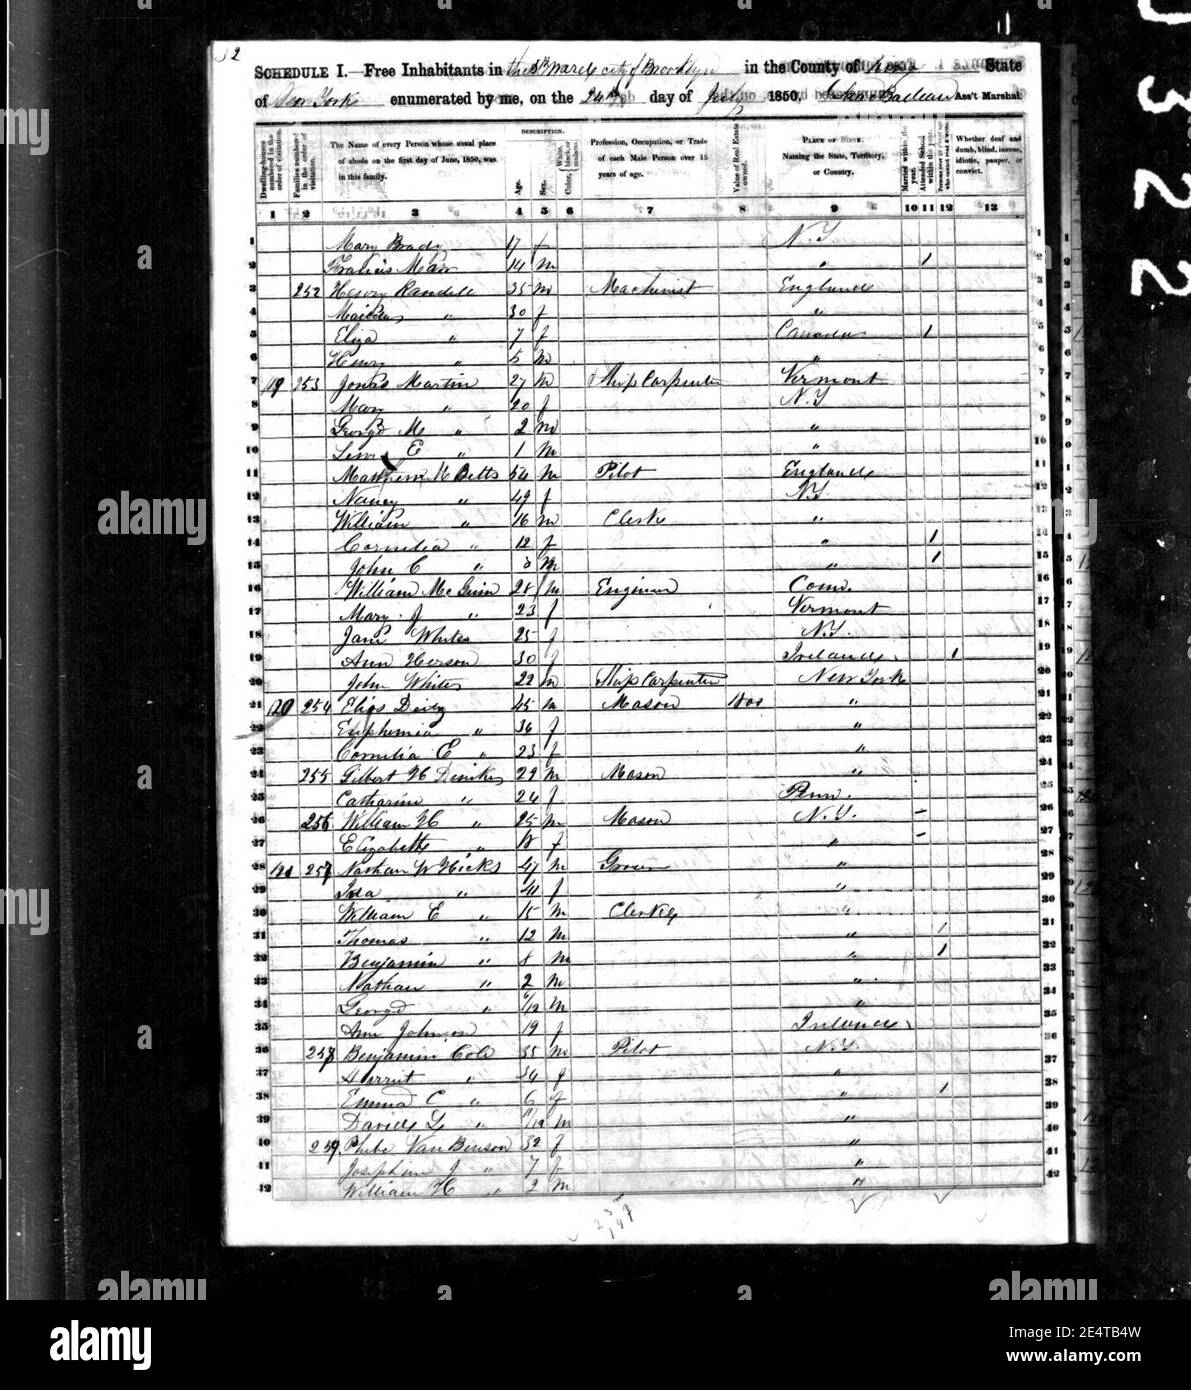 32
SCHEDULE I.—Free Inhabitants in the Ward city of Brooklyn in the County of Kings State
of New York enumerated by me, on the 24th day of July 1850. Ass't Marshal
Dwelling-houses numbered in the order of visitation.
Families numbered in the order of visitation.
The Name of every Person whose usual place of abode on the first day of June, 1850, was in this family.
DESCRIPTION.
Age.
Sex.
Color, White, black, or mulatto.
Profession, Occupation, or Trade of each Male Person over 15 years of age.
Value of Real Estate owned.
PLACE OF BIRTH. Naming the State, Territory, or Country.
Married within the year.
Attended School within the year.
Persons over 20 y'rs of age who cannot read & write.
Whether deaf and dumb, blind, insane, idiotic, pauper, or convict.
1 2 3 4 5 6 7 8 9 10 11 12 13
1 Mary Brady 17 f N.Y. 1
2 Francis 14 m " 1 2
3 252 Henry Randell 35 m Machinist England 3
4 " 30 f " 4
5 Eliza " 7 f Canada 1 5
6 Henry " 5 m " 6
7 119 253 Jonas Martin 27 m Ship Carpenter Vermont 7
8 Mary " 20 f N.Y. 8
9 George M " 2 m " 9
10 Lewis E " 1 m " 10
11 W Betts 54 m Pilot England 11
12 Nancy " 49 f N.Y. 12
13 William " 16 m Clerk " 13
14 Cornelia " 12 f " 1 14
15 John C " 8 m " 1 15
16 William McGuinn 28 m Engineer Conn. 16
17 Mary J " 23 f Vermont 17
18 Jane White 25 f N.Y. 18
19 Ann 30 f Ireland 1 19
20 John White 22 m Ship Carpenter New York 20
21 120 254 Elias 45 m Mason 1800 " 21
22 Euphemia " 36 f " 22
23 Cornelia E " 23 f " 23
24 255 Gilbert H Denike 22 m Mason " 24
25 Catharine " 24 f Penn. 25
26 256 William H " 25 m Mason N.Y. 26
27 Elizabeth " 18 f " 27
28 121 257 Nathan W Hicks 47 m Grocer " 28
29 Ida " 41 f " 29
30 William E " 15 m Clerk " 30
31 Thomas " 12 m " 1 31
32 Benjamin " 8 m " 1 32
33 Nathan " 2 m " 33
34 George " 6/12 m " 34
35 Ann Johnson 19 f Ireland 35
36 258 Benjamin Cole 35 m Pilot N.Y. 36
37 Harriet " 34 f " 37
38 Emma C " 6 f " 1 38
39 David L " 11/12 m " 39
40 259 Phebe Van Benson 32 f " 40
41 Josephine J " 7 f " 41
42 William H " 2 m " 42
alamy
Image ID: 2E4TB4W
www.alamy.com